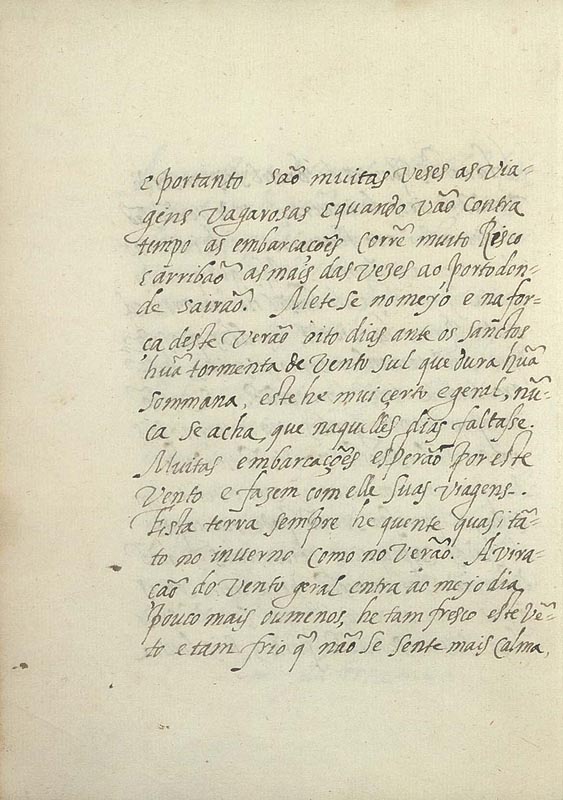 e portanto são muitas veses as via-
gens vagarosas e quando vão contra
tempo as embarcações corrẽ muito Risco
e arribão as mais das vezes ao porto don-
de sairão. Mete se no meyo e na for-
ça deste verão oito dias ante os sanctos
huã tormenta de vento sul que dura huã
sommana, este he mui certo e geral, nũ-
ca se acha, que naquelles dias faltase.
Muitas embarcações esperão por este
vento e fazem com elle suas viagens.
Esta terra sempre he quente quasi tã-
to no inverno como no verão. A vira-
ção do vento geral entra ao meyo dia
pouco mais oumenos, he tam fresco este vẽ-
to e tam frio q̃ não se sente mais calma,